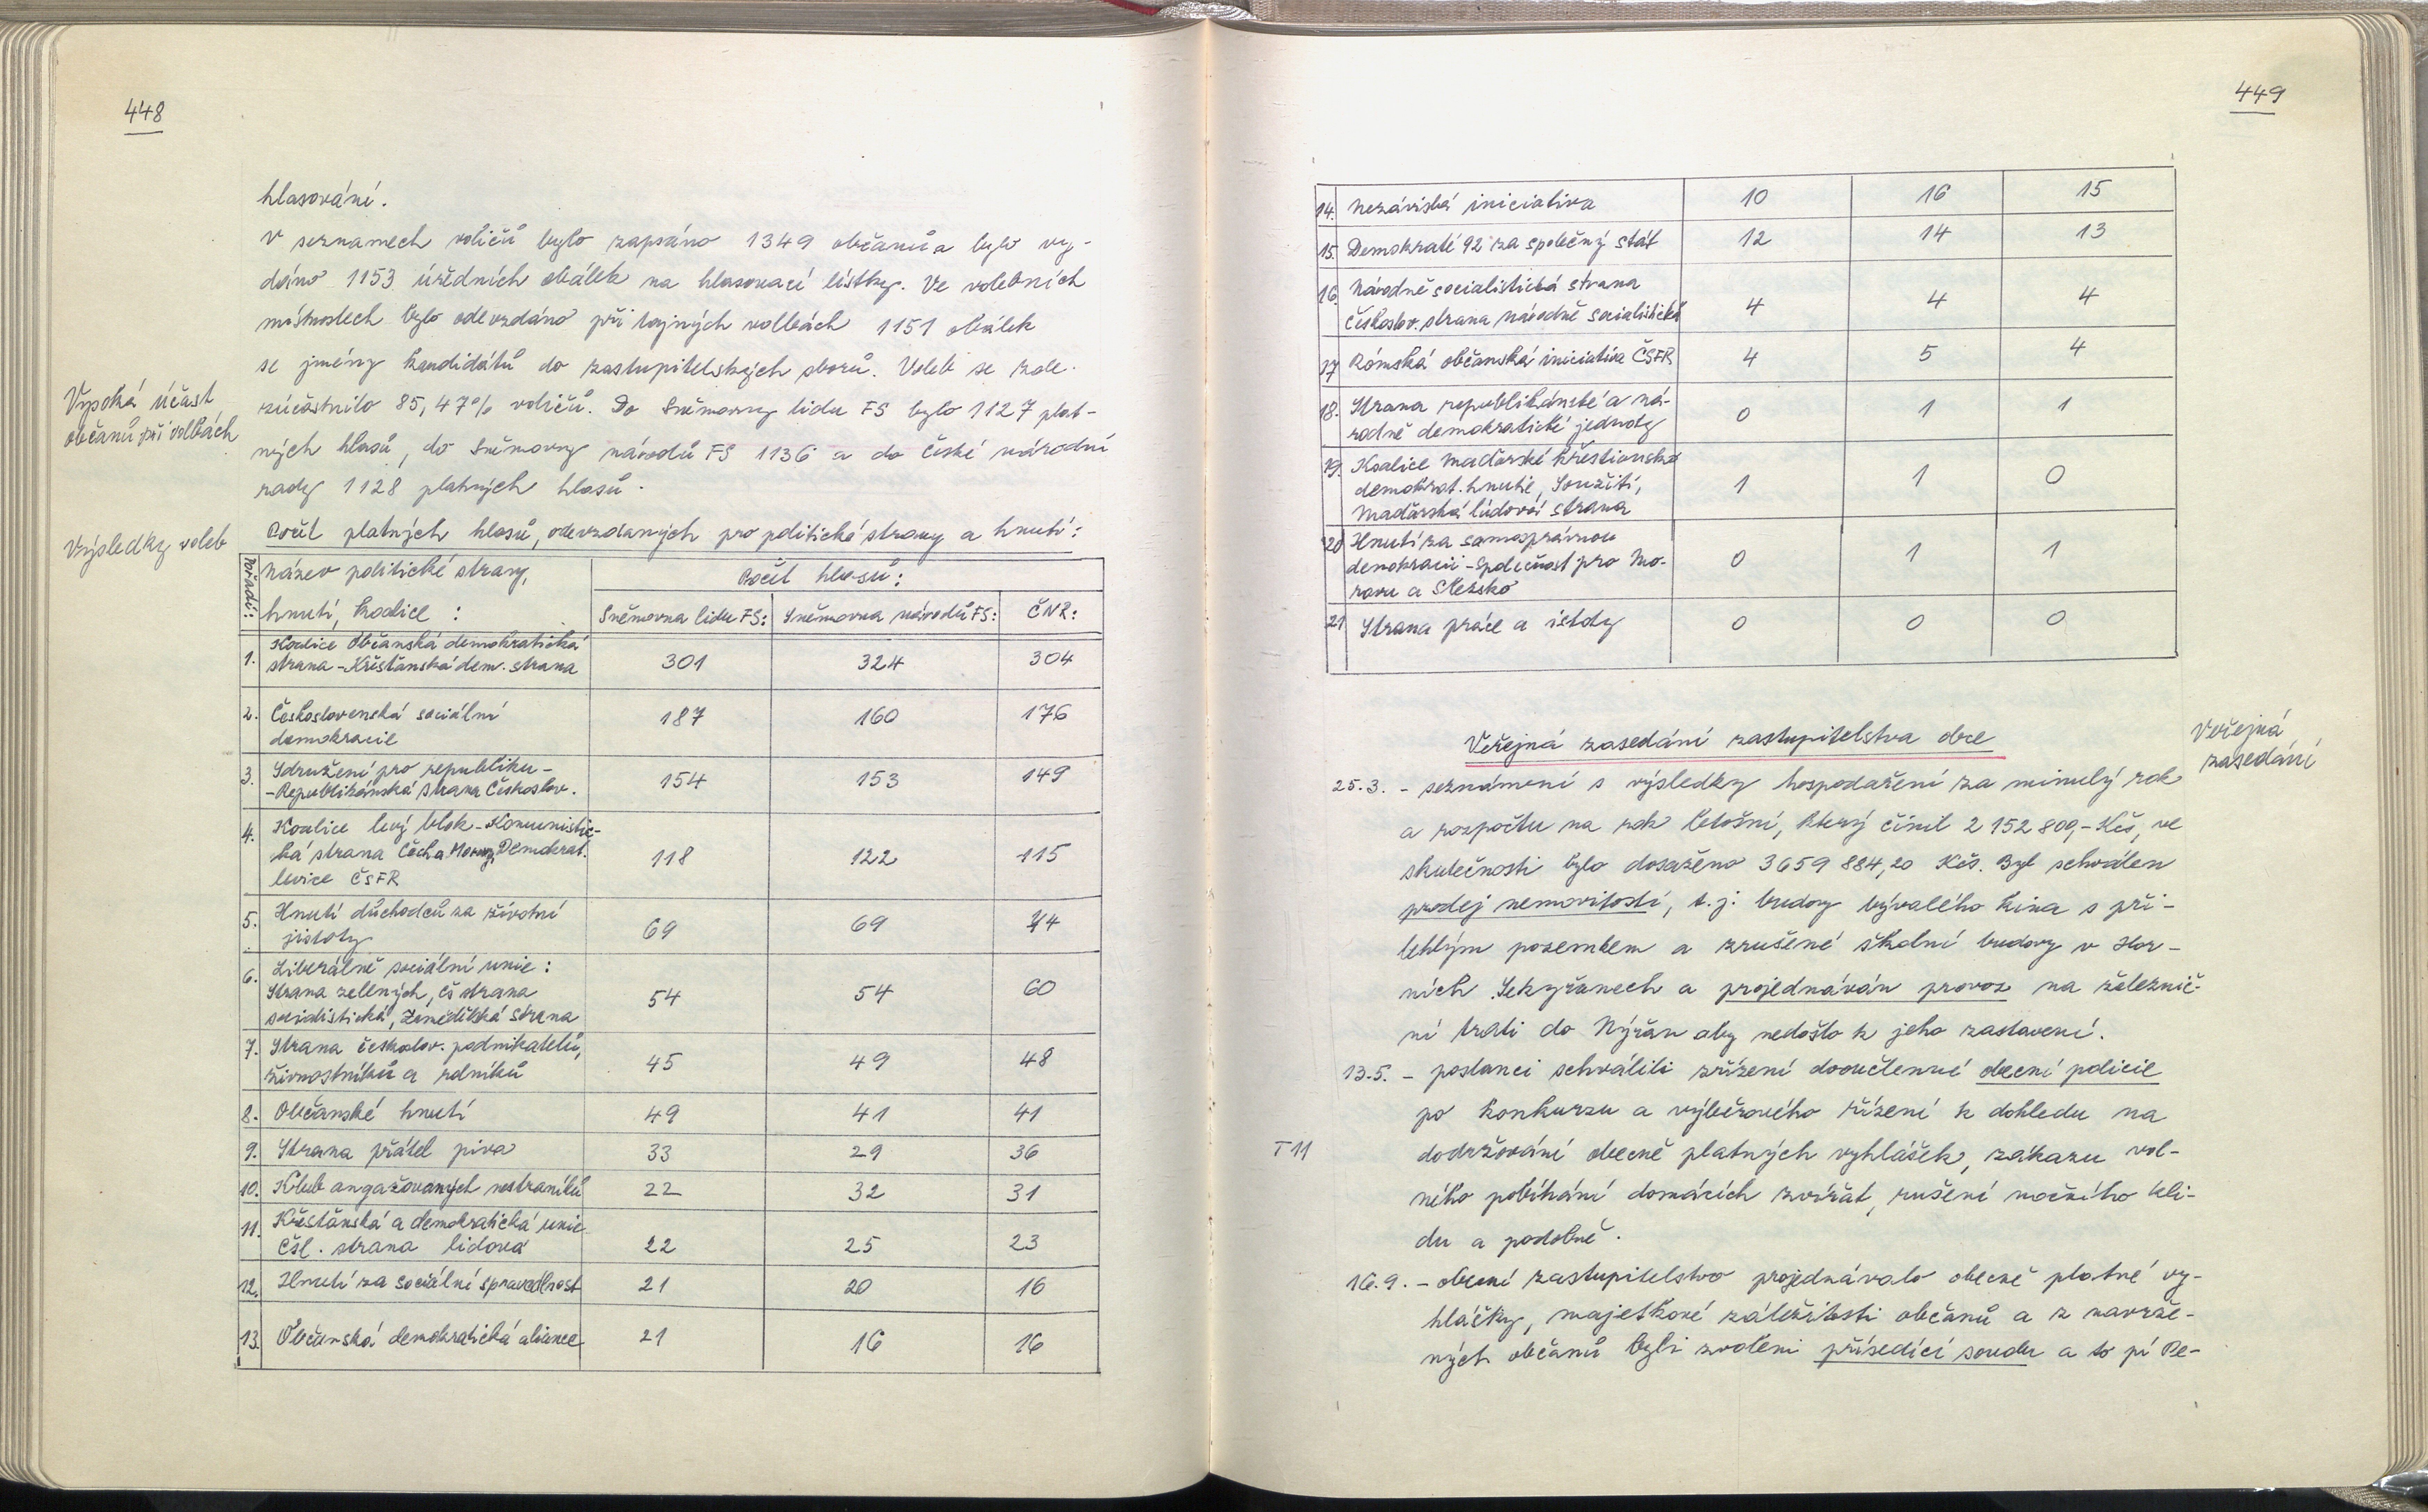 448
hlasování.
V seznamech voličů bylo zapsáno 1349 občanů a bylo vy-
dáno 1153 úředních obálek na hlasovací lístky. Ve volebních
místnostech bylo odevzdáno při tajných volbách 1151 obálek
se jmény kandidátů do zastupitelských sborů. Voleb se zde
zúčastnilo 85,47% voličů. Do Sněmovny lidu FS bylo 1127 plat-
ných hlasů, do Sněmovny národů FS 1136 a do České národní
rady 1128 platných hlasů.
Vysoká účast
občanů při volbách
Výsledky voleb
Počet platných hlasů, odevzdaných pro politické strany a hnutí:
Pořadí: Název politické strany, Počet hlasů:
hnutí, koalice : Sněmovna lidu FS: Sněmovna národů FS: ČNR:
1. Koalice Občanská demokratická
strana - Křesťanská dem. strana 301 324 304
2. Československá sociální 187 160 176
demokracie
3. Sdružení pro republiku - 154 153 149
- Republikánská strana Českoslov.
4. Koalice levý blok - Komunistic-
ká strana Čech a Moravy, Demokrat. 118 122 115
levice ČSFR
5. Hnutí důchodců za životní 69 69 44
jistoty
6. Liberálně sociální unie:
Strana zelených, čs strana 54 54 60
socialistická, Zemědělská strana
7. Strana českoslov. podnikatelů,
živnostníků a rolníků 45 49 48
8. Občanské hnutí 49 41 41
9. Strana přátel piva 33 29 36
10. Klub angažovaných nestraníků 22 32 31
11. Křesťanská a demokratická unie
čsl. strana lidová 22 25 23
12. Hnutí za sociální spravedlnost 21 20 16
13. Občanská demokratická aliance 21 16 16
449
14. Nezávislá iniciativa 10 16 15
15. Demokraté 92 za společný stát 12 14 13
16. Národně socialistická strana
Českoslov. strana národně socialistická 4 4 4
17 Rómská občanská iniciativa ČSFR 4 5 4
18. Strana republikánské a ná- 0 1 1
rodně demokratické jednoty
19. Koalice Maďarské křestianské
demokrat. hnutie, Soužití, 1 1 0
Maďarská lidová strana
20 Hnutí za samosprávnou
demokracii - společnost pro Mo- 0 1 1
ravu a Slezsko
21 Strana práce a istoty 0 0 0
Veřejná zasedání zastupitelstva obce
Veřejná
zasedání
25.3. - seznámení s výsledky hospodaření za minulý rok
a rozpočtu na rok letošní, který činil 2 152 800,- Kčs, ve
skutečnosti bylo dosaženo 3659 884,20 Kčs. Byl schválen
prodej nemovitostí, t.j: budovy bývalého kina s při-
lehlým pozemkem a zrušené školní budovy v Hor-
ních Sekyřanech a projednáván provoz na železnič-
ní trati do Nýřan aby nedošlo k jeho zastavení.
13.5. - poslanci schválili zřízení dvoučlenné obecní policie
po konkurzu a výběrového řízení k dohledu na
T 11
dodržování obecně platných vyhlášek, zákazu vol-
ného pobíhání domácích zvířat, rušení nočního kli-
du a podobně.
16.9. - obecní zastupitelstvo projednávalo obecně platné vy-
hlášky, majetkové záležitosti občanů a z navrže-
ných občanů byli zvoleni přísedící soudu a to pí Pe-